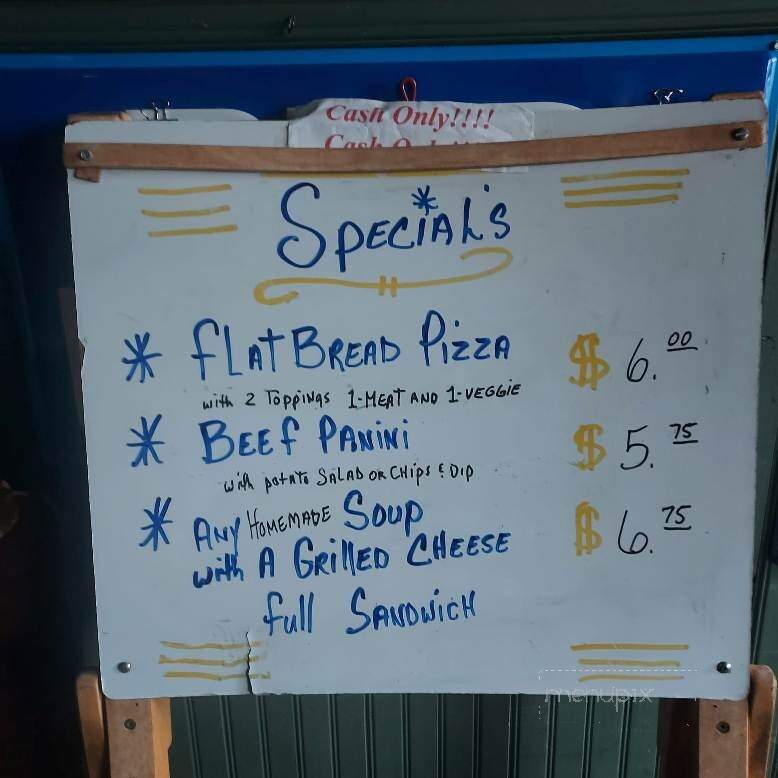 Cash Only!!!!
Cash Only!!!!
SPECIAL'S
* FLAT BREAD PIZZA $ 6.00
with 2 TOPPINGS 1-MEAT AND 1-VEGGIE
* BEEF PANINI $ 5.75
with potato SALAD OR CHIPS & DIP
* ANY HOMEMADE SOUP $ 6.75
with A GRILLED CHEESE
full SANDWICH
menupix